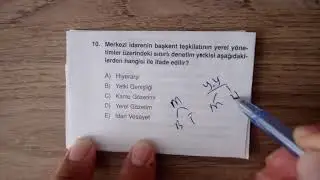 10. Merkezi idarenin başkent teşkilatının yerel yöne-
timler üzerindeki sınırlı denetim yetkisi aşağıdaki-
lerden hangisi ile ifade edilir?
A) Hiyerarşi
B) Yetki Genişliği
C) Kamu Gözetimi
D) Yerel Gözetim
E) İdari Vesayet
M
B T
YY
M Y